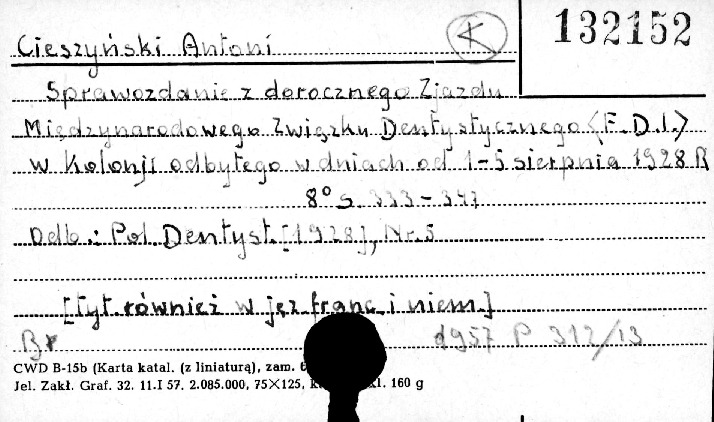 132152
Cieszyński Antoni K
Sprawozdanie z dorocznego Zjazdu
Międzynarodowego Związku Dentystycznego (F.D.I.)
w Kolonji odbytego w dniach od 1-5 sierpnia 1928 R
8° s. 333-347
Odb.: Pol. Dentyst. [1928], Nr. 5
[Tyt. również w jęz. franc. i niem.]
d1957 P 312/13
CWD B-15b (Karta katal. (z liniaturą), zam.
Jel. Zakł. Graf. 32. 11.I 57. 2.085.000, 75×125, kl. 160 g